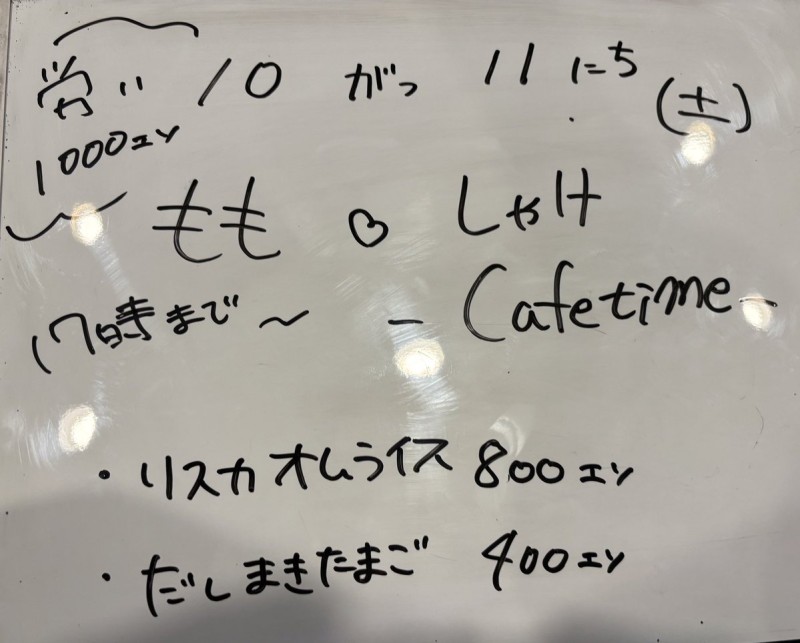 10 がつ 11 にち (土)
1000エン
もも ♡ しゃけ
17時まで〜 - Cafetime -
・リスカオムライス 800エン
・だしまきたまご 400エン